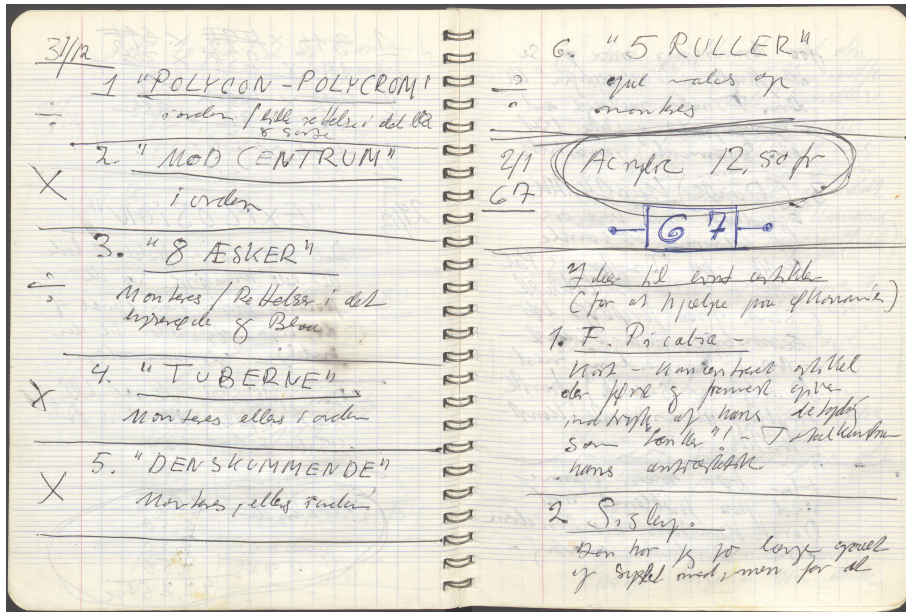 31/12
1 "POLYCON - POLYCROM"
iorden / lille rettelse i det
& sorte
2. "MOD CENTRUM"
iorden
3. "8 ÆSKER"
Monteres / Rettelser i det
& Blaa
4. "TUBERNE"
Monteres ellers iorden
5. "DENSKUMMENDE"
Monteres, ellers iorden
6. "5 RULLER"
gul males op
montres
2/1
67
Acrylic 12,50 kr
67
Ideer til artikler
(for at hjælpe paa økonomien)
1. F. Picabia -
Kort - koncentreret artikel
der først & fremmest giver
indtryk af hans betydning
som
hans antiæstetik
2
Den har jeg jo længe gaaet
& med, men for at